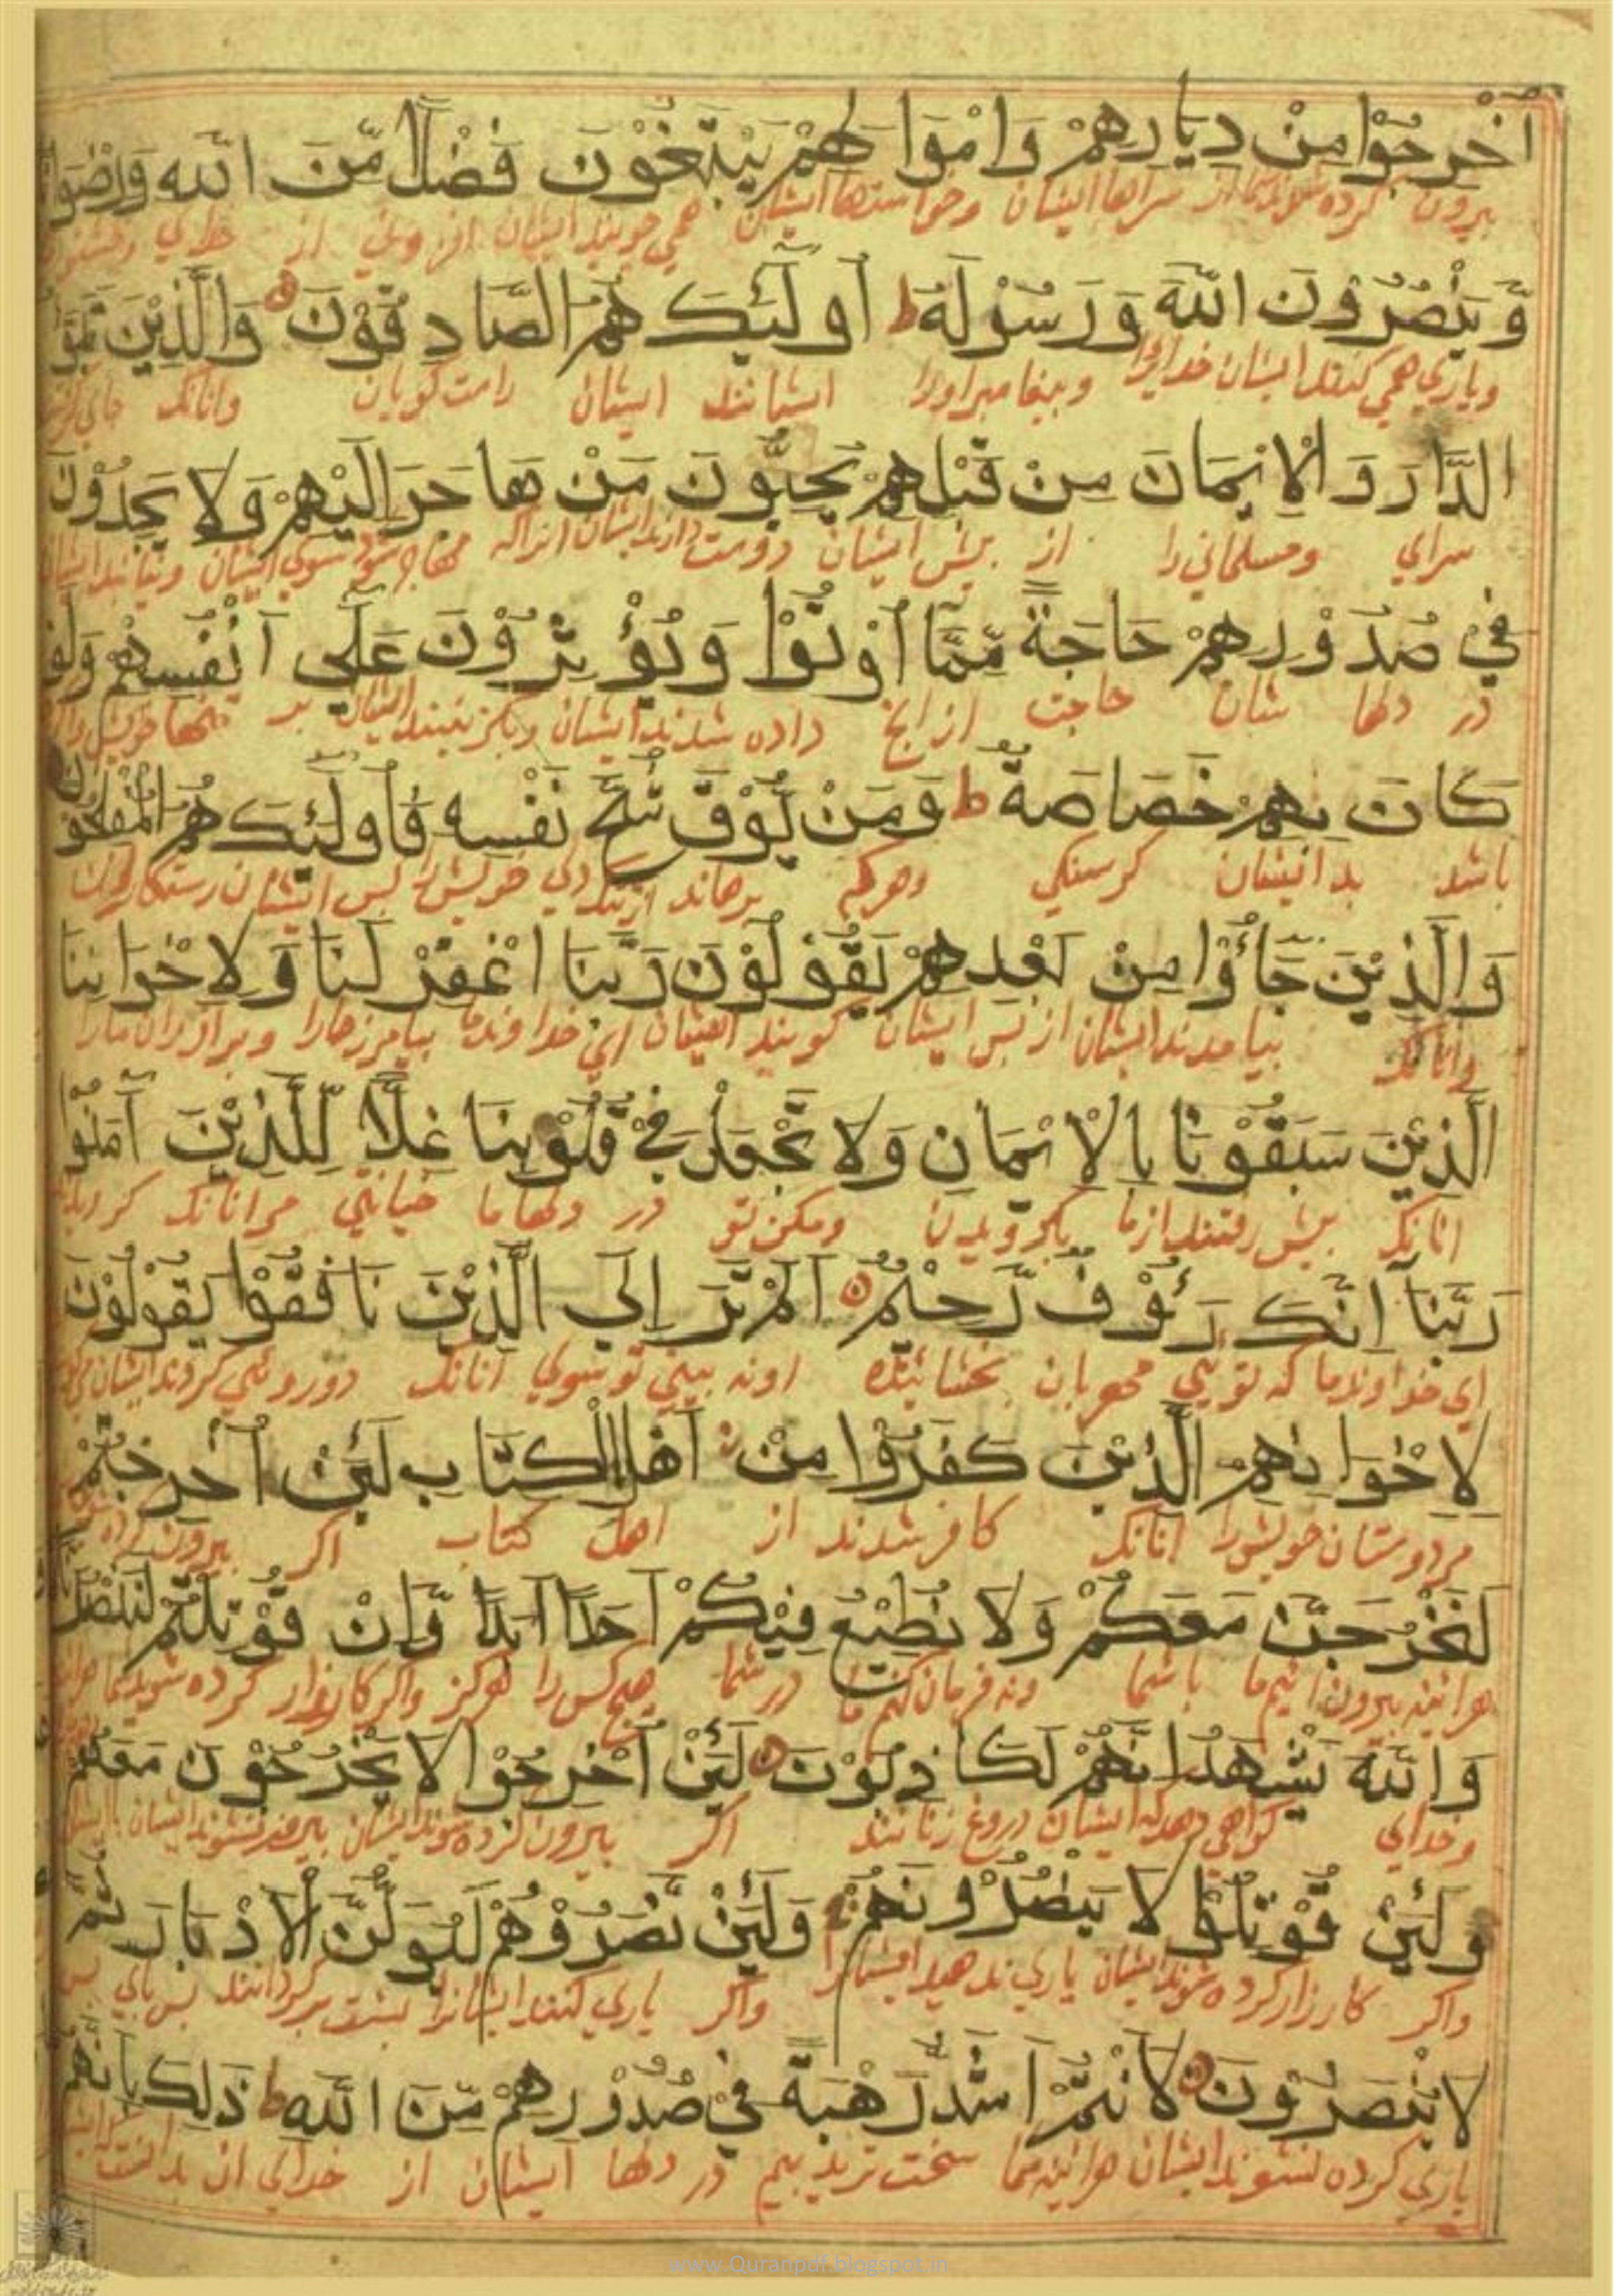 اُخْرِجُوْا مِنْ دِيَارِهِمْ وَاَمْوَالِهِمْ يَبْتَغُوْنَ فَضْلًا مِّنَ اللّٰهِ وَرِضْوَانًا
بيرون كرده شوند از سرايها ايشان وخواستها ايشان همي جويند ايشان افزوني از خداي
وَّيَنْصُرُوْنَ اللّٰهَ وَرَسُوْلَهٗ ط اُولٰٓئِكَ هُمُ الصَّادِقُوْنَ وَالَّذِيْنَ تَبَوَّؤُ
وياري همي كنند ايشان خدايرا وپيغامبر اورا ايشانند ايشان راست كويان وانانك جاي
الدَّارَ وَالْاِيْمَانَ مِنْ قَبْلِهِمْ يُحِبُّوْنَ مَنْ هَاجَرَ اِلَيْهِمْ وَلَا يَجِدُوْنَ
سراي ومسلماني را از پيش ايشان دوست دارند ايشان انراكه سوي ايشان ونيابند ايشان
فِيْ صُدُوْرِهِمْ حَاجَةً مِّمَّا اُوْتُوْا وَيُؤْثِرُوْنَ عَلٰى اَنْفُسِهِمْ وَلَوْ
در دلها شان حاجت از انچ داده شدند ايشان وبكزينند ايشان بر تنها خويش
كَانَ بِهِمْ خَصَاصَةٌ ط وَمَنْ يُّوْقَ شُحَّ نَفْسِهٖ فَاُولٰٓئِكَ هُمُ الْمُفْلِحُوْنَ
باشد بدانيشان كرسنكي وهركه برهاند خويش را پس ايشان رستكاران
وَالَّذِيْنَ جَآءُوْا مِنْ بَعْدِهِمْ يَقُوْلُوْنَ رَبَّنَا اغْفِرْ لَنَا وَلِاِخْوَانِنَا
وانانك بيامدند ايشان از پس ايشان كويند ايشان اي خداوندما بيامرز مارا وبرادران مارا
الَّذِيْنَ سَبَقُوْنَا بِالْاِيْمَانِ وَلَا تَجْعَلْ فِيْ قُلُوْبِنَا غِلًّا لِّلَّذِيْنَ اٰمَنُوْا
انانك پيش رفتند از ما بكرويدن ومكن تو در دلها ما خيانتي مرانانك
رَبَّنَآ اِنَّكَ رَءُوْفٌ رَّحِيْمٌ اَلَمْ تَرَ اِلَى الَّذِيْنَ نَافَقُوْا يَقُوْلُوْنَ
اي خداوندما كه تويي مهربان بخشاينده اونه بيني تو سوي انانك دوروئي كردند ايشان
لِاِخْوَانِهِمُ الَّذِيْنَ كَفَرُوْا مِنْ اَهْلِ الْكِتَابِ لَئِنْ اُخْرِجْتُمْ
مردوستان خويش را انانك كافر شدند از اهل كتاب اكر بيرون
لَنَخْرُجَنَّ مَعَكُمْ وَلَا نُطِيْعُ فِيْكُمْ اَحَدًا اَبَدًا وَّاِنْ قُوْتِلْتُمْ لَنَنْصُرَنَّكُمْ
هراينه بيرون ائيم ما باشما ونه فرمان كنيم ما در شما هيچ كس را هركز واكر كارزار كرده شويد شما
وَاللّٰهُ يَشْهَدُ اِنَّهُمْ لَكَاذِبُوْنَ لَئِنْ اُخْرِجُوْا لَا يَخْرُجُوْنَ مَعَهُمْ
وخداي كواهي دهد كه ايشان دروغ زنانند اكر بيرون كرده شوند ايشان بيرون نشوند ايشان
وَلَئِنْ قُوْتِلُوْا لَا يَنْصُرُوْنَهُمْ وَلَئِنْ نَّصَرُوْهُمْ لَيُوَلُّنَّ الْاَدْبَارَ ثُمَّ
واكر كارزار كرده شوند ايشان ياري ندهند ايشانرا واكر ياري كنند ايشانرا پشت بركردانند
لَا يُنْصَرُوْنَ لَاَنْتُمْ اَشَدُّ رَهْبَةً فِيْ صُدُوْرِهِمْ مِّنَ اللّٰهِ ط ذٰلِكَ بِاَنَّهُمْ
ياري كرده نشوند ايشان هراينه شما سخت تريد ببيم در دلها ايشان از خداي ان
www.Quranpdf.blogspot.in